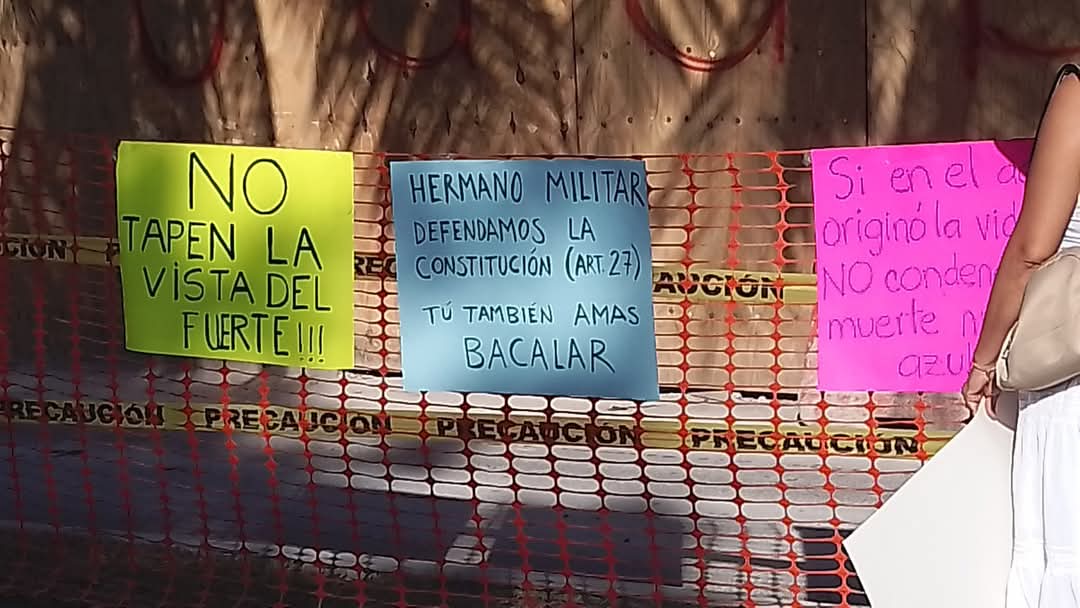 NO
TAPEN LA
VISTA DEL
FUERTE!!!
HERMANO MILITAR
DEFENDAMOS LA
CONSTITUCIÓN (ART. 27)
TÚ TAMBIÉN AMAS
BACALAR
Si en el
originó la
NO
muerte
AUCIÓN
RECAUCIÓN PRECAUCIÓN PRECAUCIÓN PRECAUCIÓN